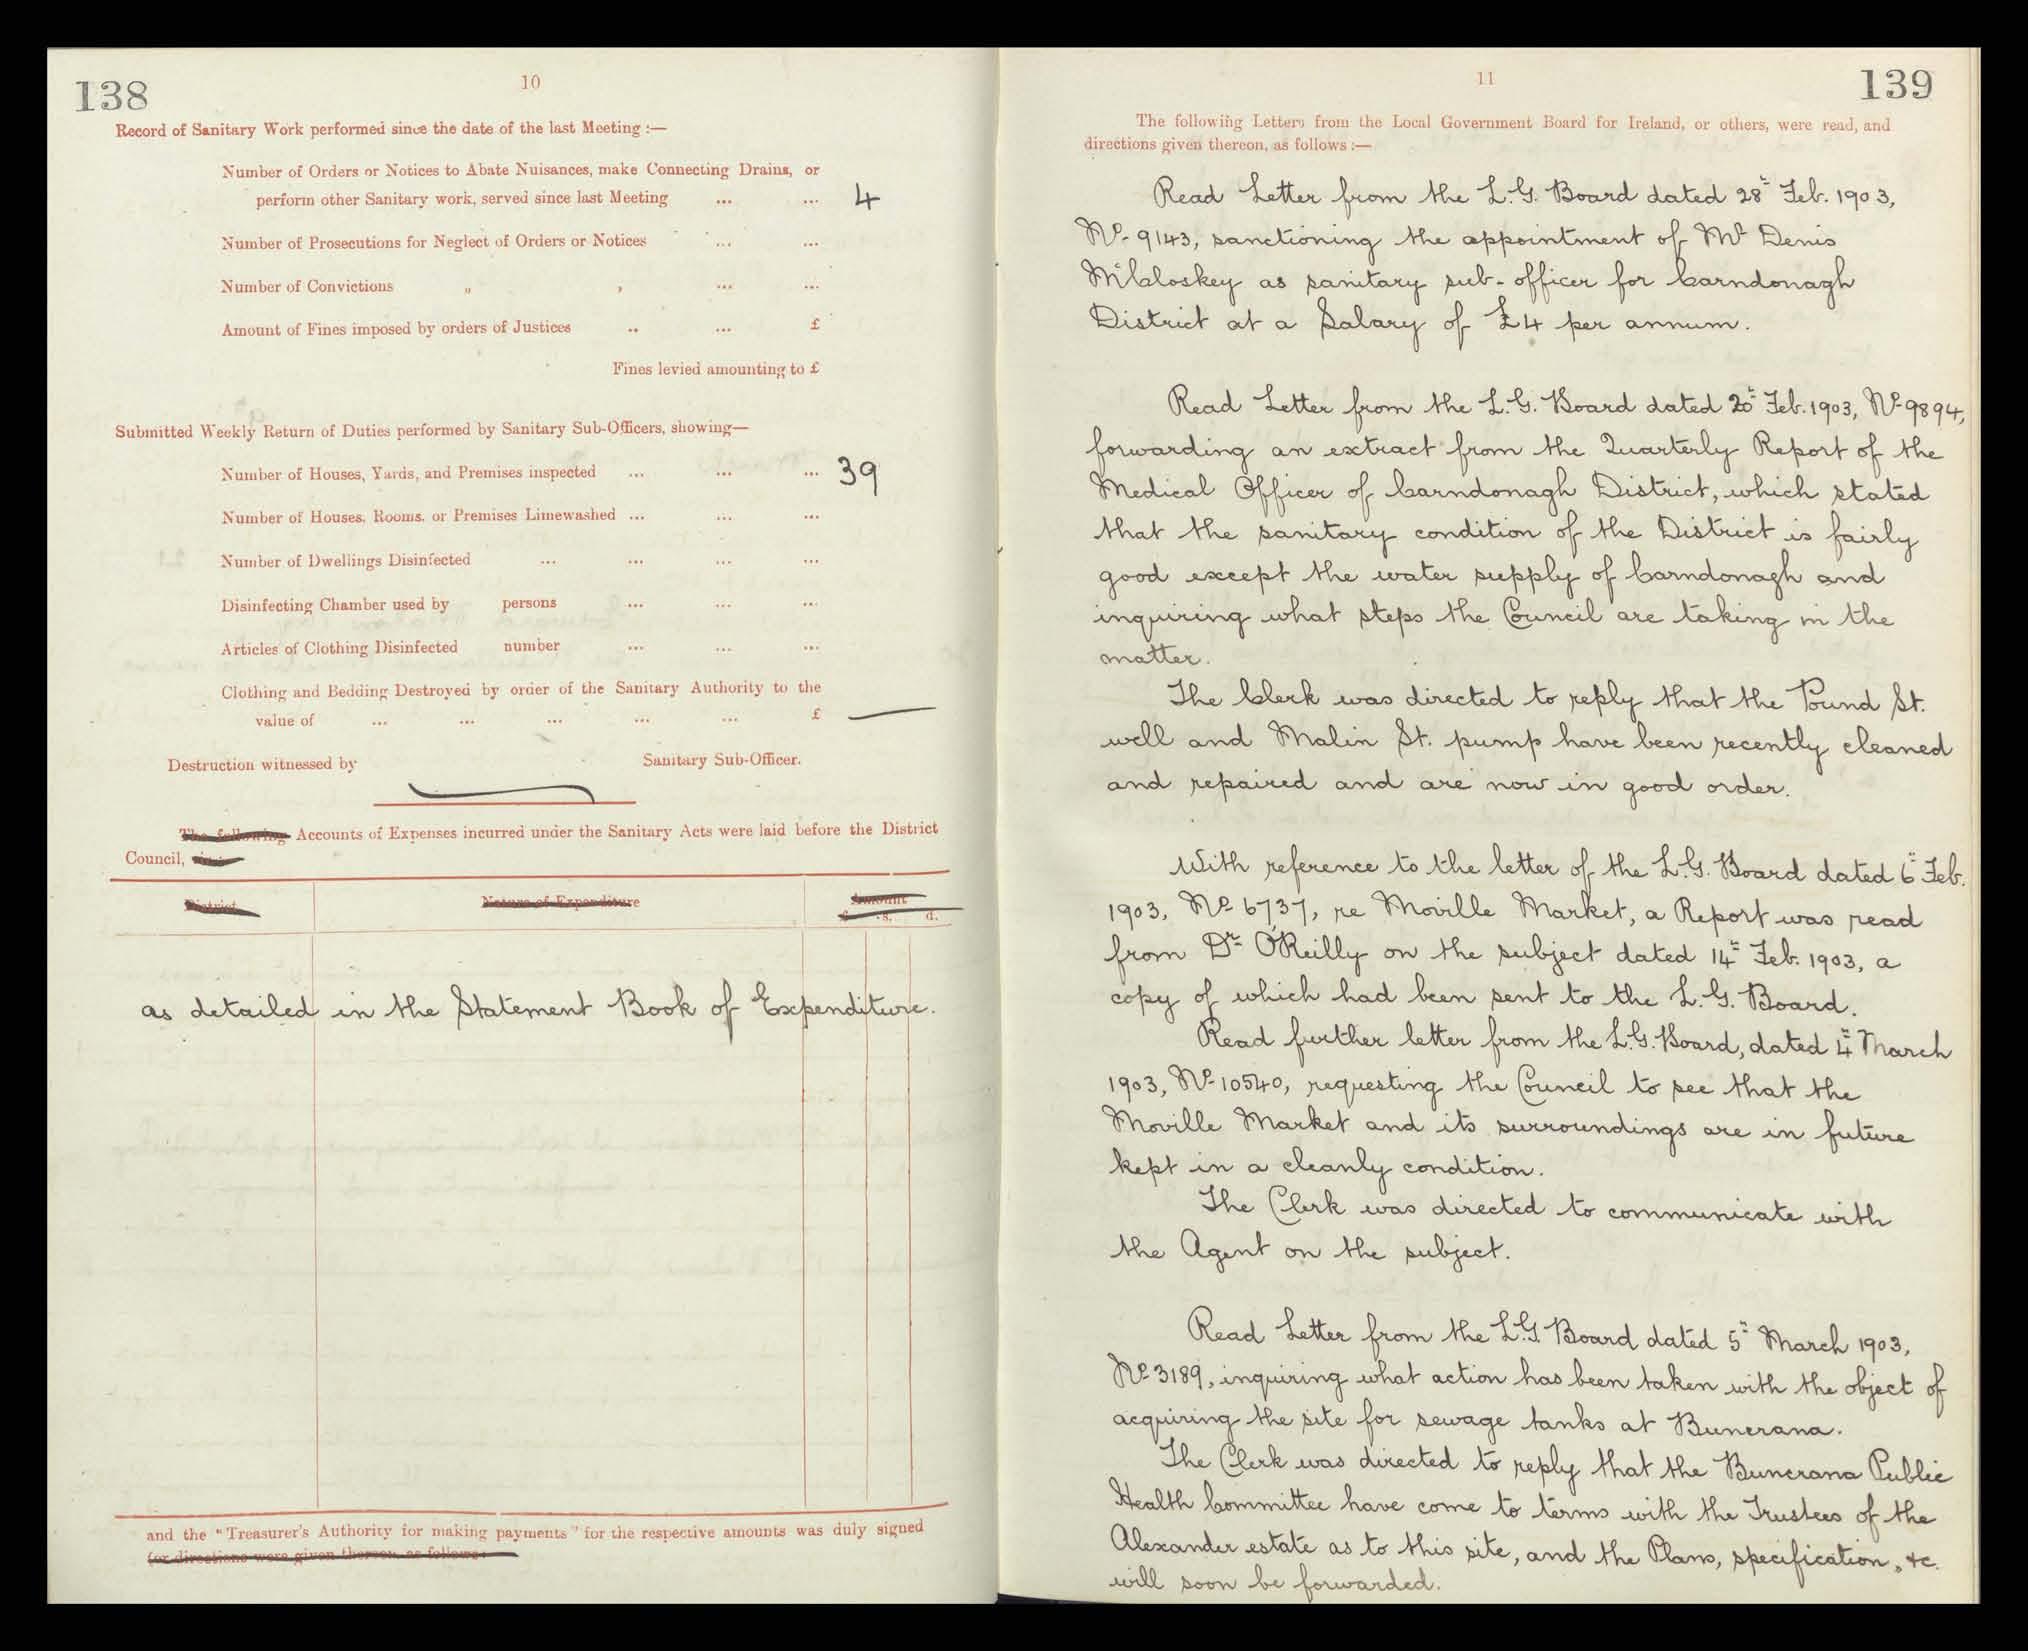 138
10
Record of Sanitary Work performed since the date of the last Meeting :—
Number of Orders or Notices to Abate Nuisances, make Connecting Drains, or
perform other Sanitary work, served since last Meeting ... ... 4
Number of Prosecutions for Neglect of Orders or Notices ... ...
Number of Convictions „ , ... ...
Amount of Fines imposed by orders of Justices .. ... £
Fines levied amounting to £
Submitted Weekly Return of Duties performed by Sanitary Sub-Officers, showing—
Number of Houses, Yards, and Premises inspected ... ... ... 39
Number of Houses, Rooms, or Premises Limewashed ... ... ...
Number of Dwellings Disinfected ... ... ... ...
Disinfecting Chamber used by persons ... ... ...
Articles of Clothing Disinfected number ... ... ...
Clothing and Bedding Destroyed by order of the Sanitary Authority to the
value of ... ... ... ... ... £ —
Destruction witnessed by Sanitary Sub-Officer.
The following Accounts of Expenses incurred under the Sanitary Acts were laid before the District
Council,
District Nature of Expenditure Amount
£ s. d.
as detailed in the Statement Book of Expenditure.
and the "Treasurer's Authority for making payments" for the respective amounts was duly signed
(or directions were given thereon, as follows:
11
139
The following Letters from the Local Government Board for Ireland, or others, were read, and
directions given thereon, as follows :—
Read Letter from the L.G. Board dated 28th Feb. 1903,
No. 9143, sanctioning the appointment of Mr Denis
McCloskey as sanitary sub-officer for Carndonagh
District at a Salary of £4 per annum.
Read Letter from the L.G. Board dated 20th Feb. 1903, No. 9894,
forwarding an extract from the Quarterly Report of the
Medical Officer of Carndonagh District, which stated
that the sanitary condition of the District is fairly
good except the water supply of Carndonagh and
inquiring what steps the Council are taking in the
matter.
The Clerk was directed to reply that the Pound St.
well and Malin St. pump have been recently cleaned
and repaired and are now in good order.
With reference to the letter of the L.G. Board dated 6th Feb.
1903, No. 6737, re Moville Market, a Report was read
from Dr. O'Reilly on the subject dated 14th Feb. 1903, a
copy of which had been sent to the L.G. Board.
Read further letter from the L.G. Board, dated 4th March
1903, No. 10540, requesting the Council to see that the
Moville Market and its surroundings are in future
kept in a cleanly condition.
The Clerk was directed to communicate with
the Agent on the subject.
Read Letter from the L.G. Board dated 5th March 1903,
No. 3189, inquiring what action has been taken with the object of
acquiring the site for sewage tanks at Buncrana.
The Clerk was directed to reply that the Buncrana Public
Health Committee have come to terms with the Trustees of the
Alexander estate as to this site, and the Plans, specification, &c.
will soon be forwarded.